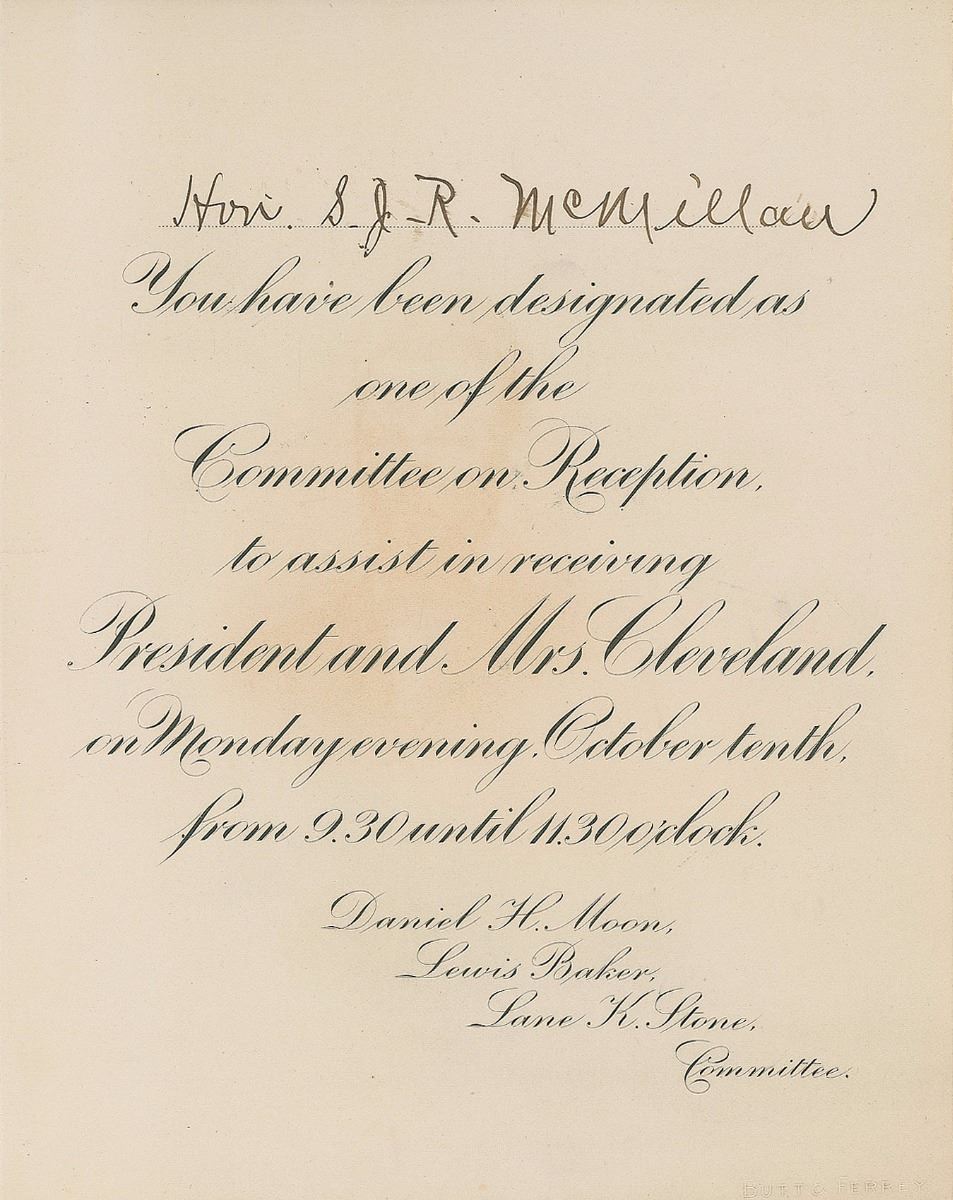 Hon. S. J. R. McMillan
You have been designated as
one of the
Committee on Reception,
to assist in receiving
President and Mrs. Cleveland,
on Monday evening, October tenth,
from 9.30 until 11.30 o'clock.
Daniel H. Moon,
Lewis Baker,
Lane K. Stone,
Committee.